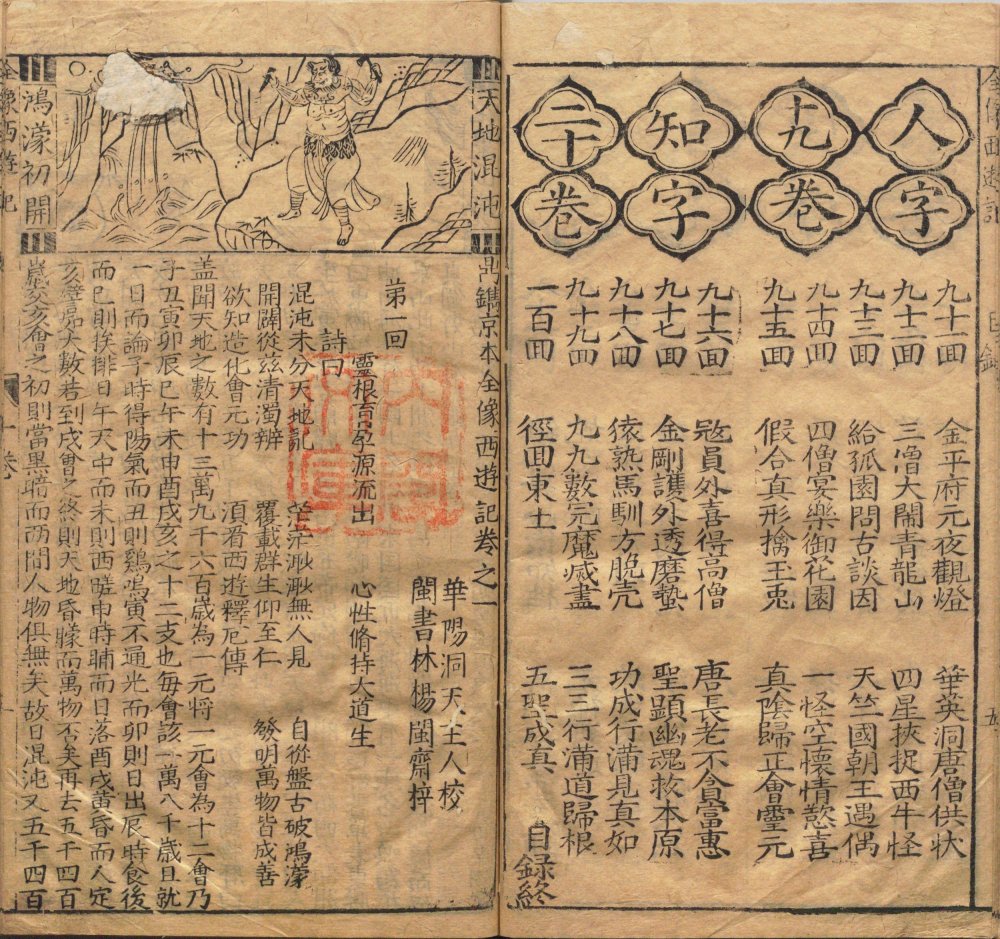 全像西遊記 目錄
人字
十九卷
知字
二十卷
九十一囬 金平府元夜觀燈 華英洞唐僧供狀
九十二囬 三僧大鬧青龍山 四星挾捉西牛怪
九十三囬 給狐園問古談因 天竺國朝王遇偶
九十四囬 四僧宴樂御花園 一怪空懷情慾喜
九十五囬 假合真形擒玉兎 真陰歸正會靈元
九十六囬 寇員外喜得高僧 唐長老不貪富惠
九十七囬 金剛護外透磨蟄 聖顯幽魂救本原
九十八囬 猿熟馬馴方脫壳 功成行滿見真如
九十九囬 九九數完魔滅盡 三三行滿道歸根
一百囬 徑囬東土 五聖成真
目録終
天地混沌
鴻濛初開
鼎鐫京本全像西遊記卷之一
華陽洞天主人校
閩書林楊閩齋梓
第一回
靈根育孕源流出 心性脩持大道生
詩曰
混沌未分天地亂 茫茫渺渺無人見 自從盤古破鴻濛
開闢從玆清濁辨 覆載群生仰至仁 發明萬物皆成善
欲知造化會元功 須看西遊釋厄傳
盖聞天地之數有十三萬九千六百歲為一元将一元會為十二會乃
子丑寅卯辰巳午未申酉戌亥之十二支也毎會該一萬八千歲且就
一日而論子時得陽氣而丑則鷄鳴寅不通光而卯則日出辰時食後
而巳則挨排日午天中而未則西蹉申時晡而日落酉戌黄昏而人定
亥譬於大數若到戌會之終則天地昏曚而萬物否矣再去五千四百
歲交亥會之初則當黒暗而两間人物俱無矣故曰混沌又五千四百
全像西遊記
一卷
一